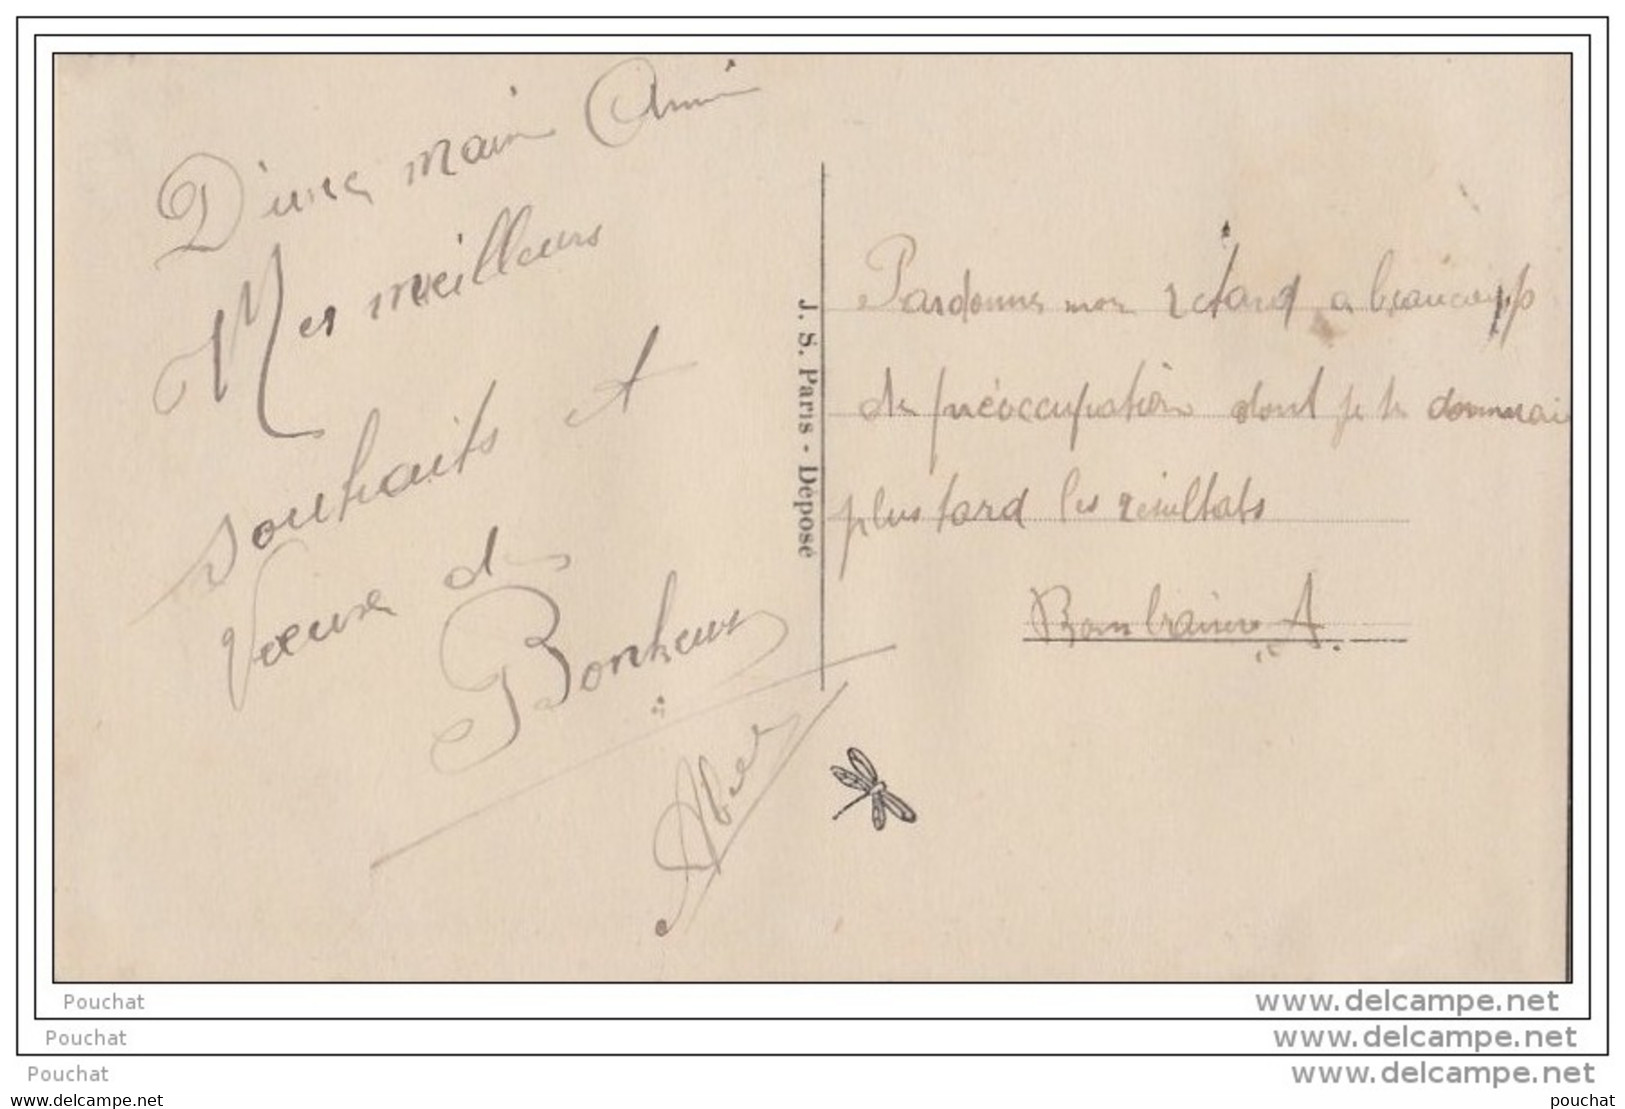 D'une main Amie
Mes meilleurs
souhaits et
Voeux de
Bonheur
Abel
J. S. Paris - Déposé
Pardonne mon retard a beaucoup
de préoccupation dont je te donnerai
plus tard les résultats
A.
Pouchat
www.delcampe.net
Pouchat
www.delcampe.net
Pouchat
www.delcampe.net
www.delcampe.net
pouchat